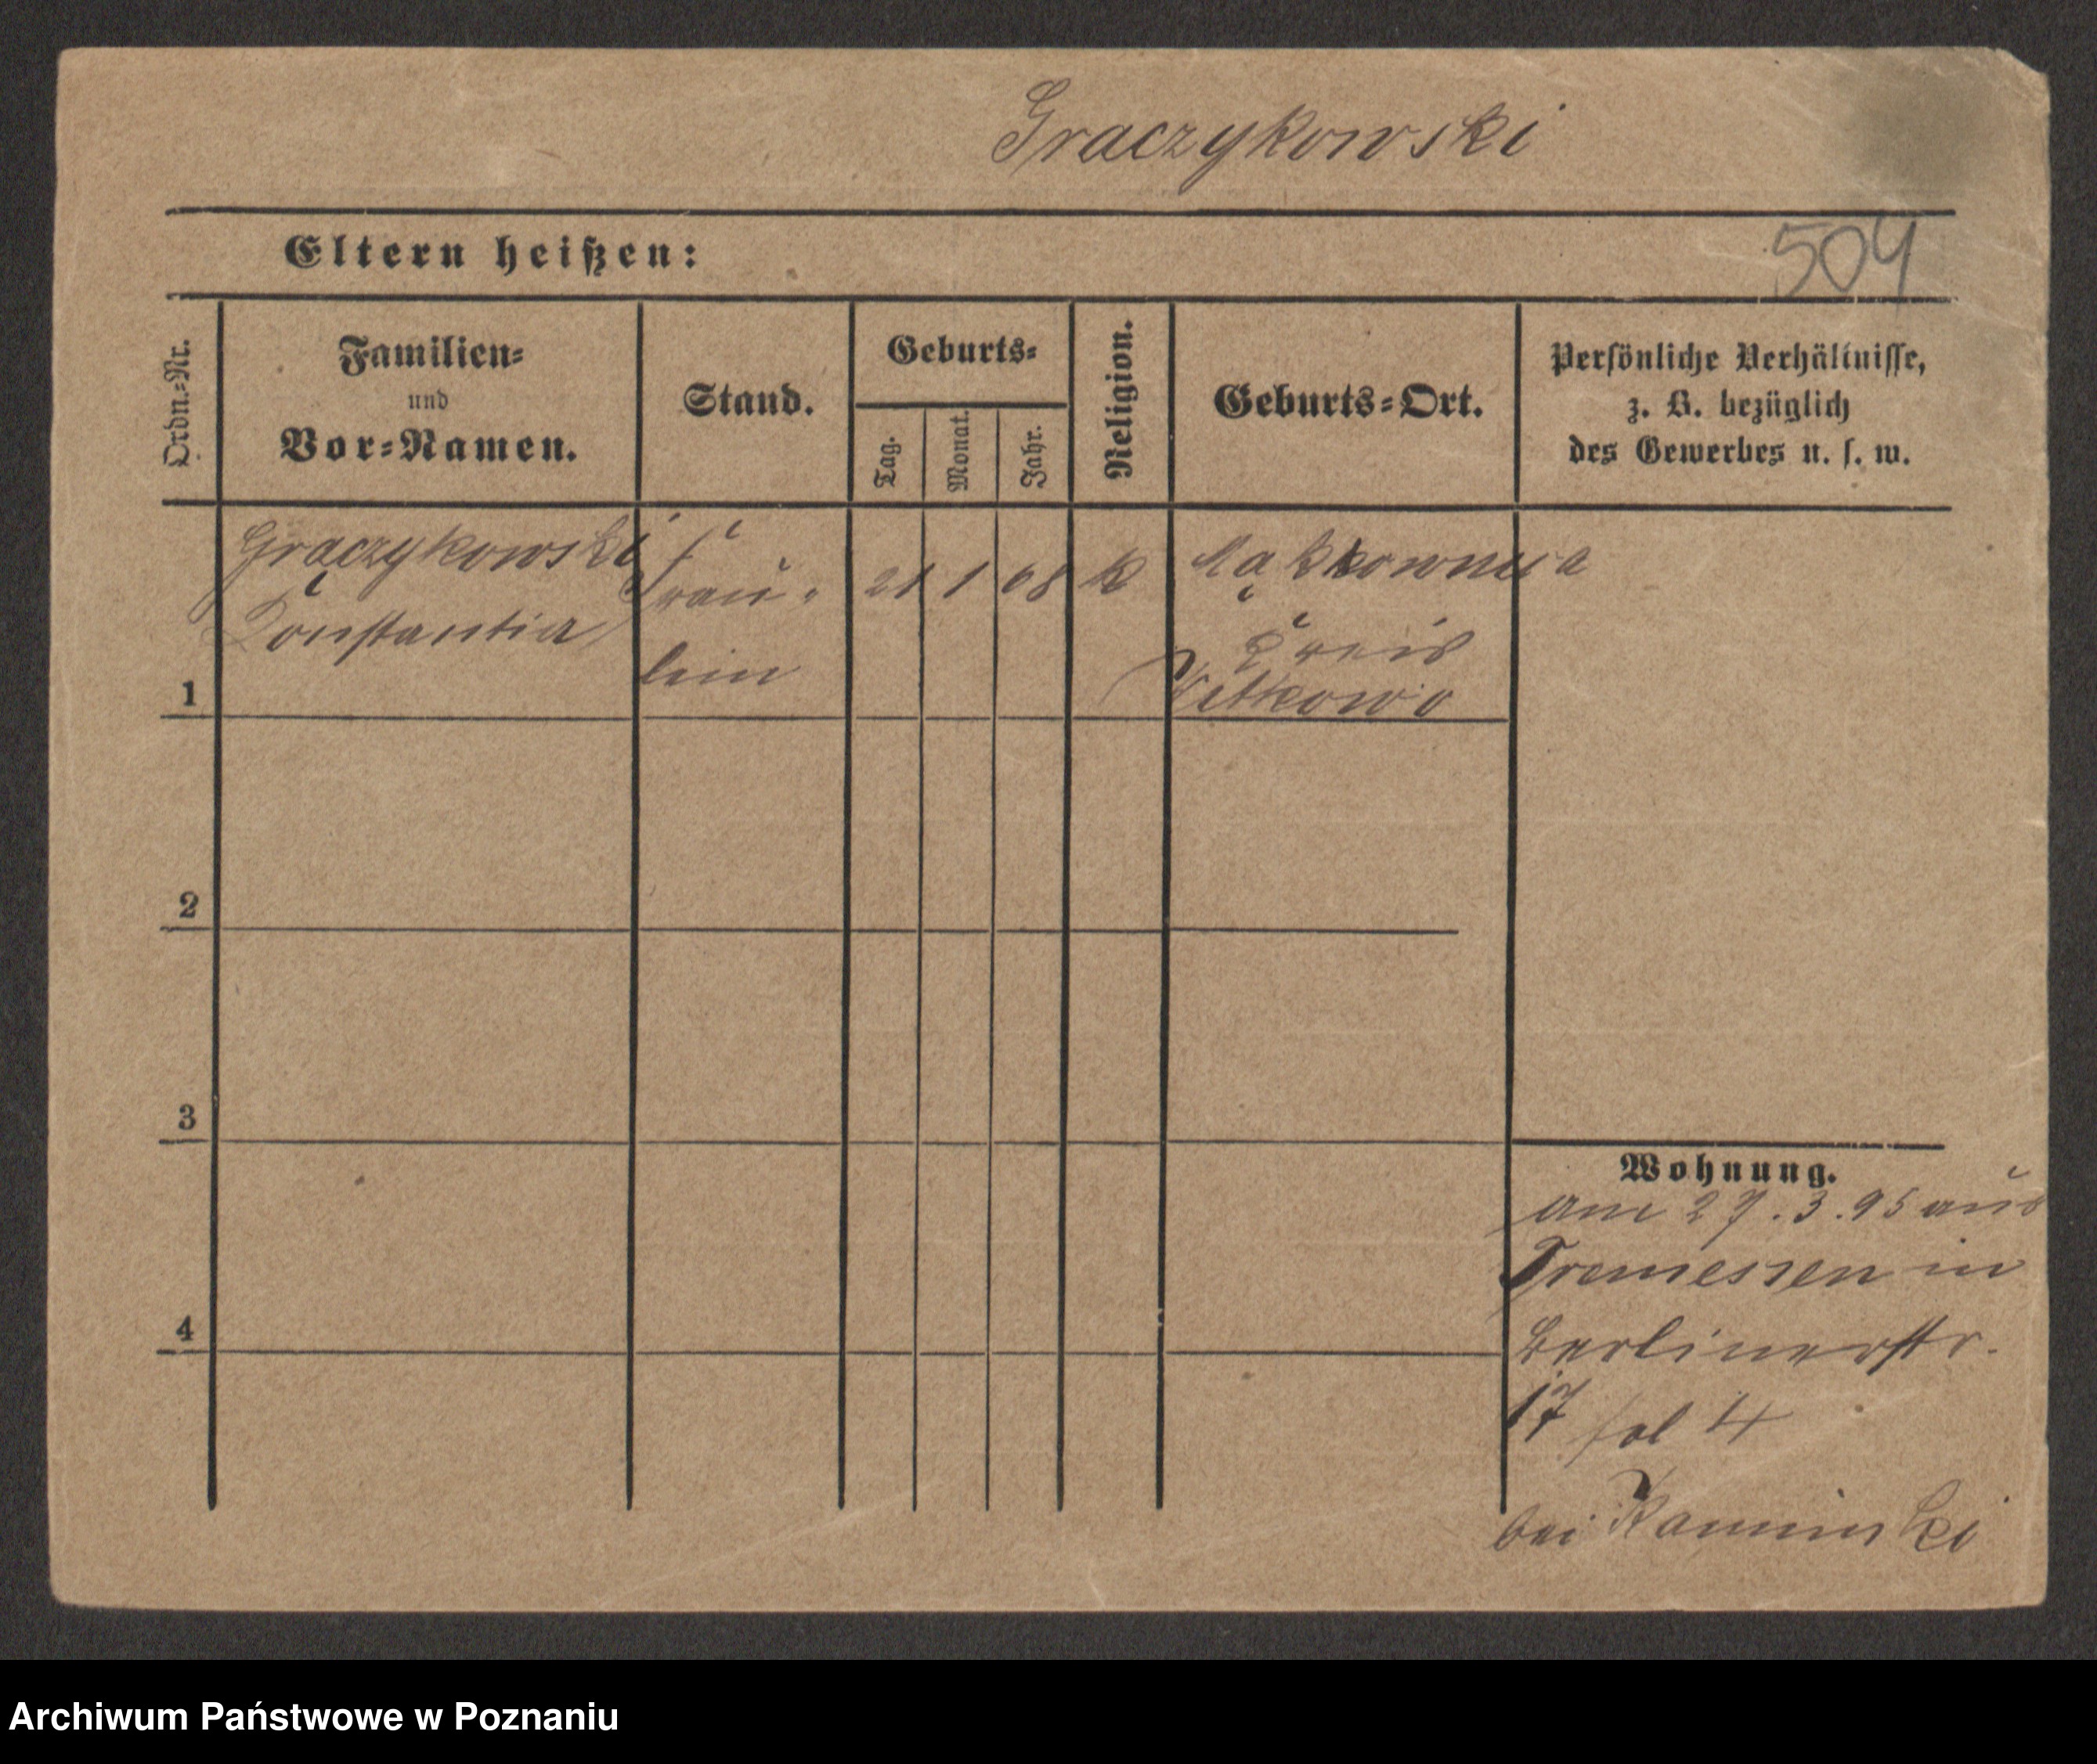 Graczykowski
Eltern heißen:
504
Ordn.-Nr.
Familien-
und
Vor-Namen.
Stand.
Geburts-
Tag.
Monat.
Jahr.
Religion.
Geburts-Ort.
Persönliche Verhältnisse,
z. B. bezüglich
des Gewerbes u. s. w.
1
Graczykowski
Constantia
Fräu-
lein
21
1
68
k
Kreis
Witkowo
2
3
4
Wohnung.
am 27.3.95 aus
Tremessen in
Berlinerstr.
17 fol 4
bei Kaminski
Archiwum Państwowe w Poznaniu